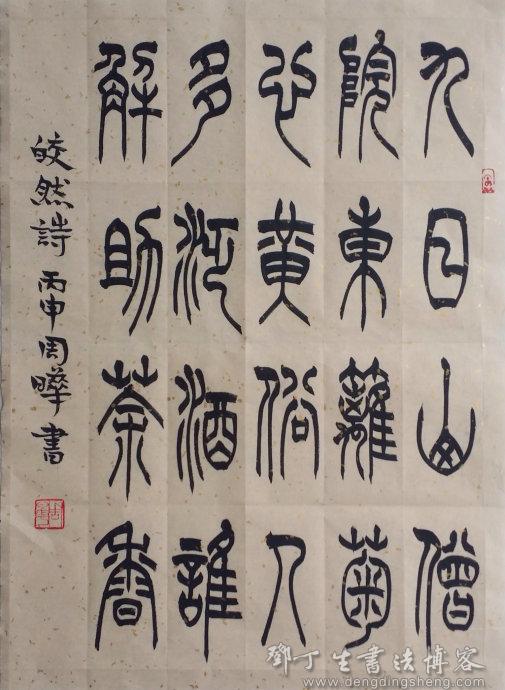 九日山僧
院東籬菊
也黄俗人
多泛酒誰
解助茶香
皎然詩 丙申周曄書
鄧丁生書法博客
www.dengdingsheng.com